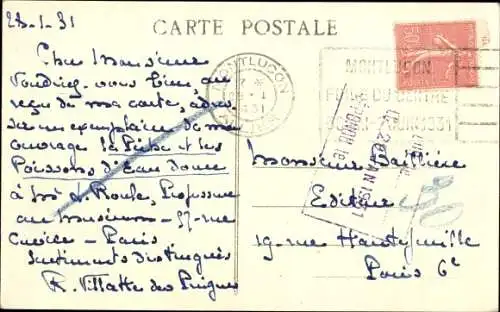 CARTE POSTALE
28-1-31
Cher Monsieur
Voudriez-vous bien, au
reçu de ma carte, adres
ser un exemplaire de mon
ouvrage la Pêche et les
Poissons d'Eau douce
à Mr L. Roule, Professeur
au Museum - 57 rue
Cuvier - Paris
Sentiments distingués
R. Villatte des Prûgnes
MONTLUÇON
MONTLUÇON
FOIRE DU CENTRE
JUIN 1931
28 JAN 1931
Monsieur Baillière
Editeur
19 rue Hautefeuille
Paris 6e